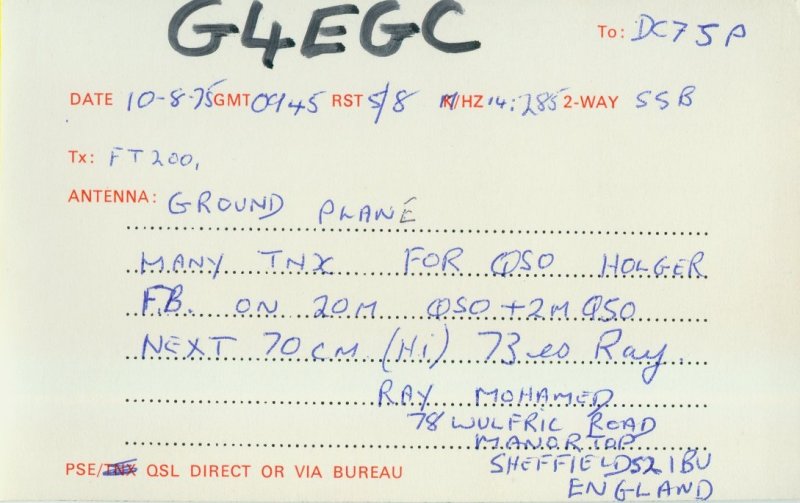 G4EGC
To: DC75P
DATE 10-8-75 GMT 0945 RST 5/8 M/HZ 14:285 2-WAY SSB
Tx: FT200,
ANTENNA: GROUND PLANE
MANY TNX FOR QSO HOLGER
F.B. ON 20M QSO + 2M QSO
NEXT 70CM (Hi) 73 es Ray.
RAY MOHAMED
78 WULFRIC ROAD
MANOR TOP
SHEFFIELD S2 1BU
ENGLAND
PSE/TNX QSL DIRECT OR VIA BUREAU